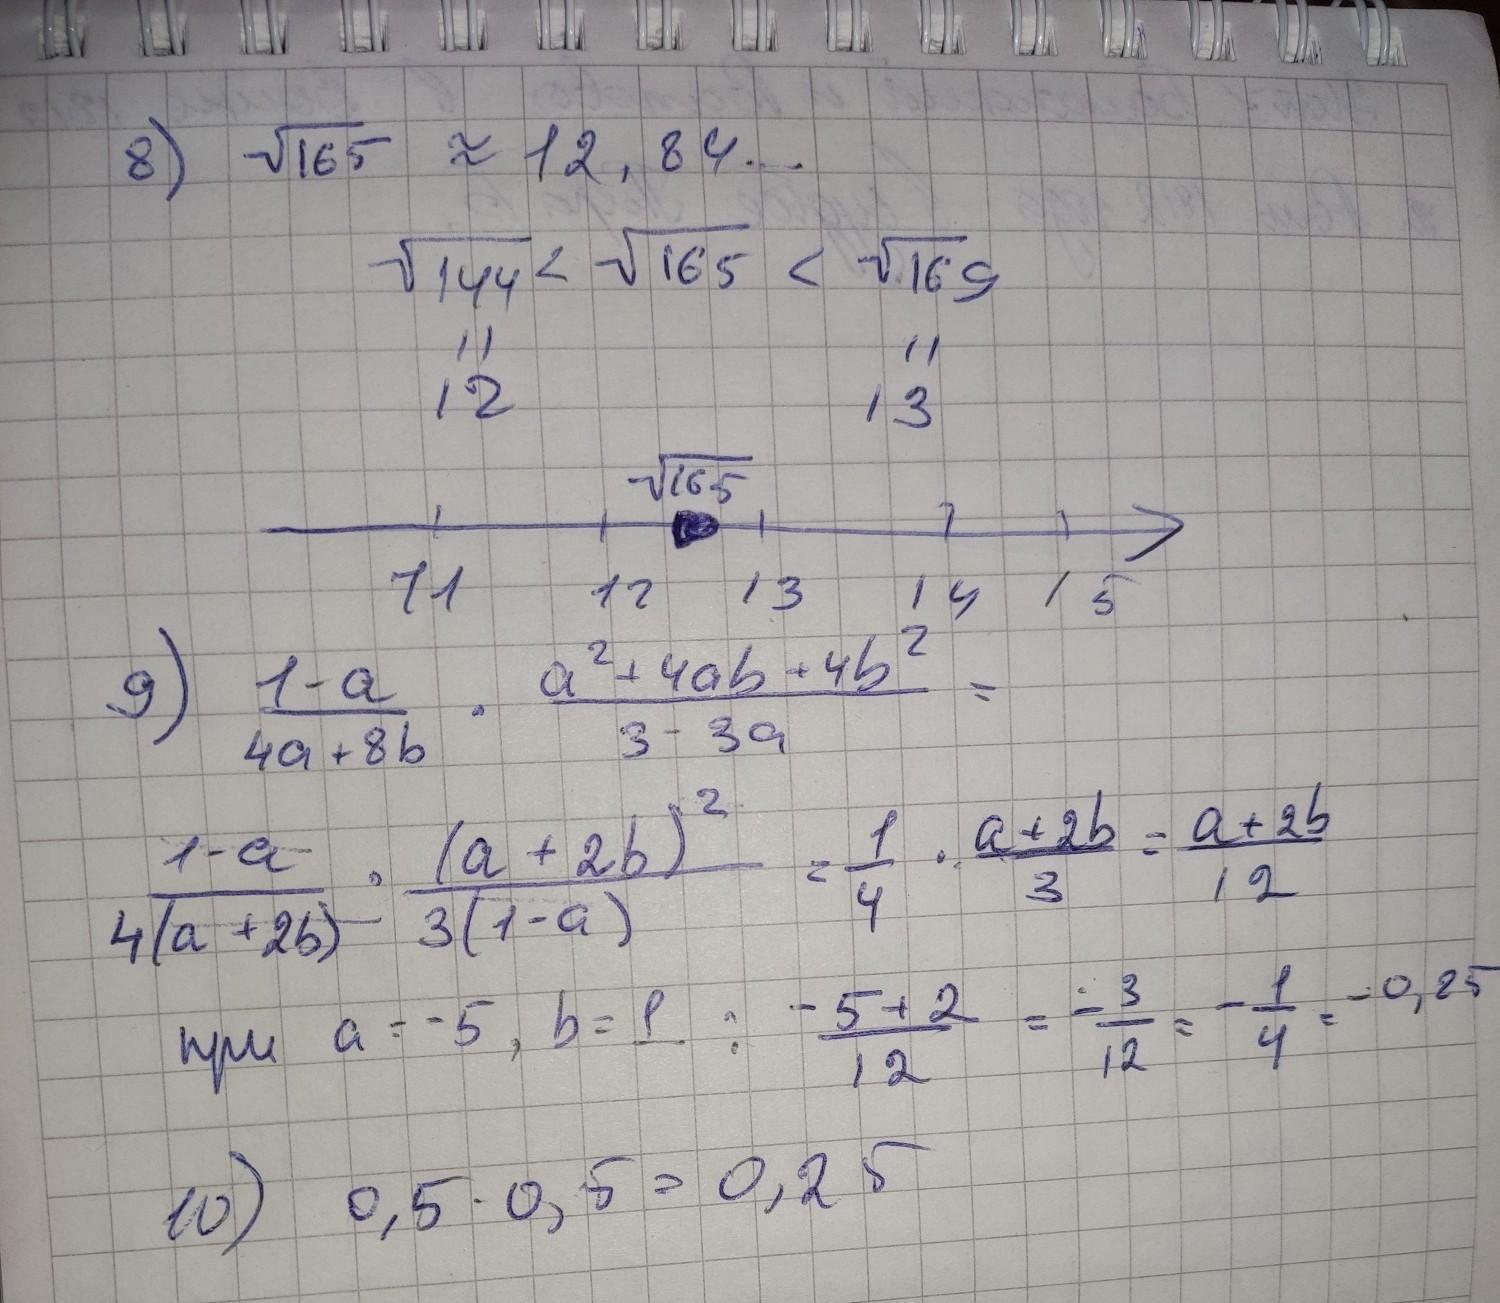 8) √165 ≈ 12,84...
√144 < √165 < √169
11 11
12 13
√165
11 12 13 14 15
9) (1-a)/(4a+8b) · (a²+4ab+4b²)/(3-3a) =
(1-a)/(4(a+2b)) · (a+2b)²/(3(1-a)) = 1/4 · (a+2b)/3 = (a+2b)/12
при a=-5, b=1 : (-5+2)/12 = -3/12 = -1/4 = -0,25
10) 0,5·0,5=0,25